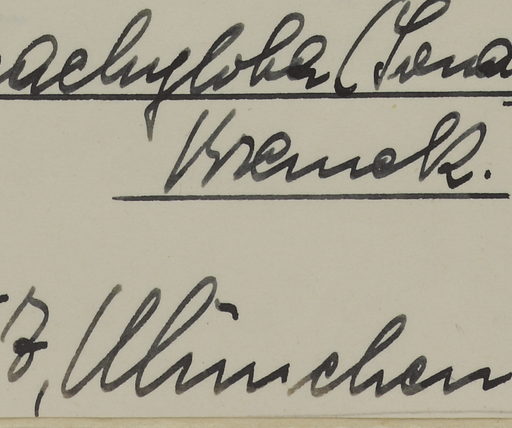 achyloba (Sona
Bremek.
7, München